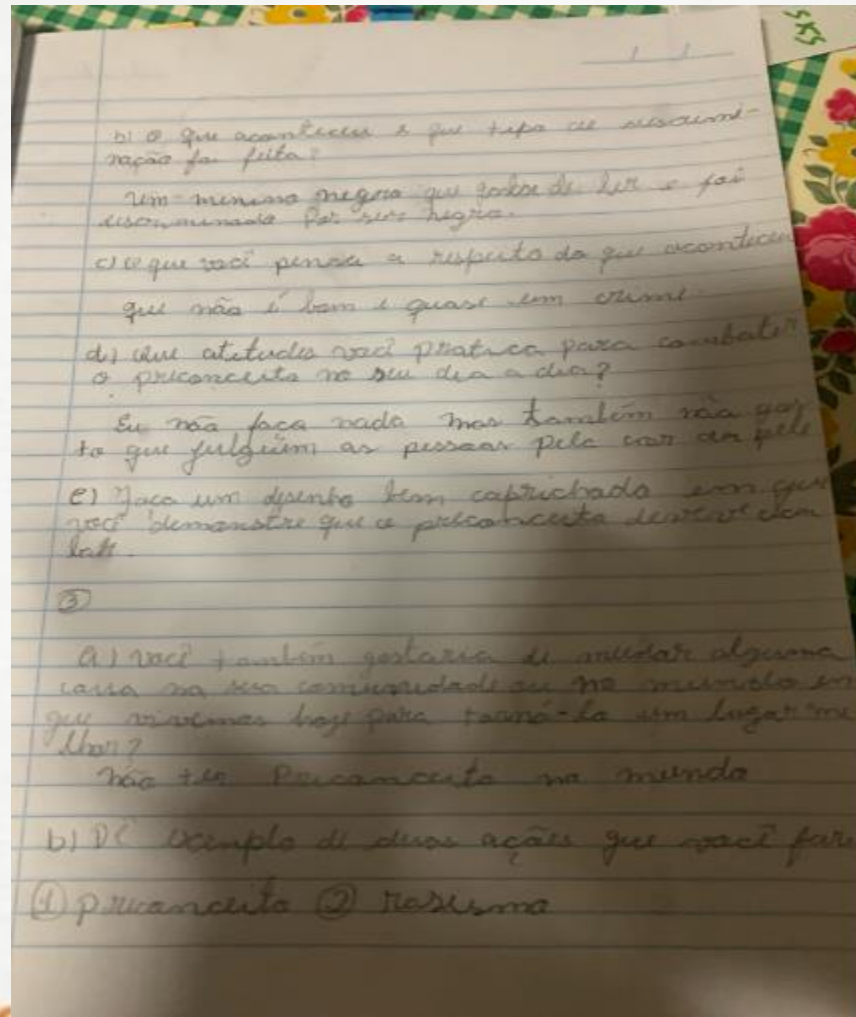 SKS
b) O que aconteceu e que tipo de discrimi-
nação foi feita?
um menino negro que gostou de ler e foi
discriminado por ser negro.
c) o que você pensa a respeito do que aconteceu
que não é bom e quase um crime.
d) Que atitudes você pratica para combater
o preconceito no seu dia a dia?
Eu não faço nada mas também não gos-
to que julguem as pessoas pela cor da pele
e) Faça um desenho bem caprichado em que
você demonstre que o preconceito deve
③
a) você também gostaria de mudar alguma
coisa na sua comunidade ou no mundo em
que vivemos hoje para torná-lo um lugar me
lhor?
não ter Preconceito no mundo
b) Dê exemplo de duas ações que você fari
① preconceito ② rasismo